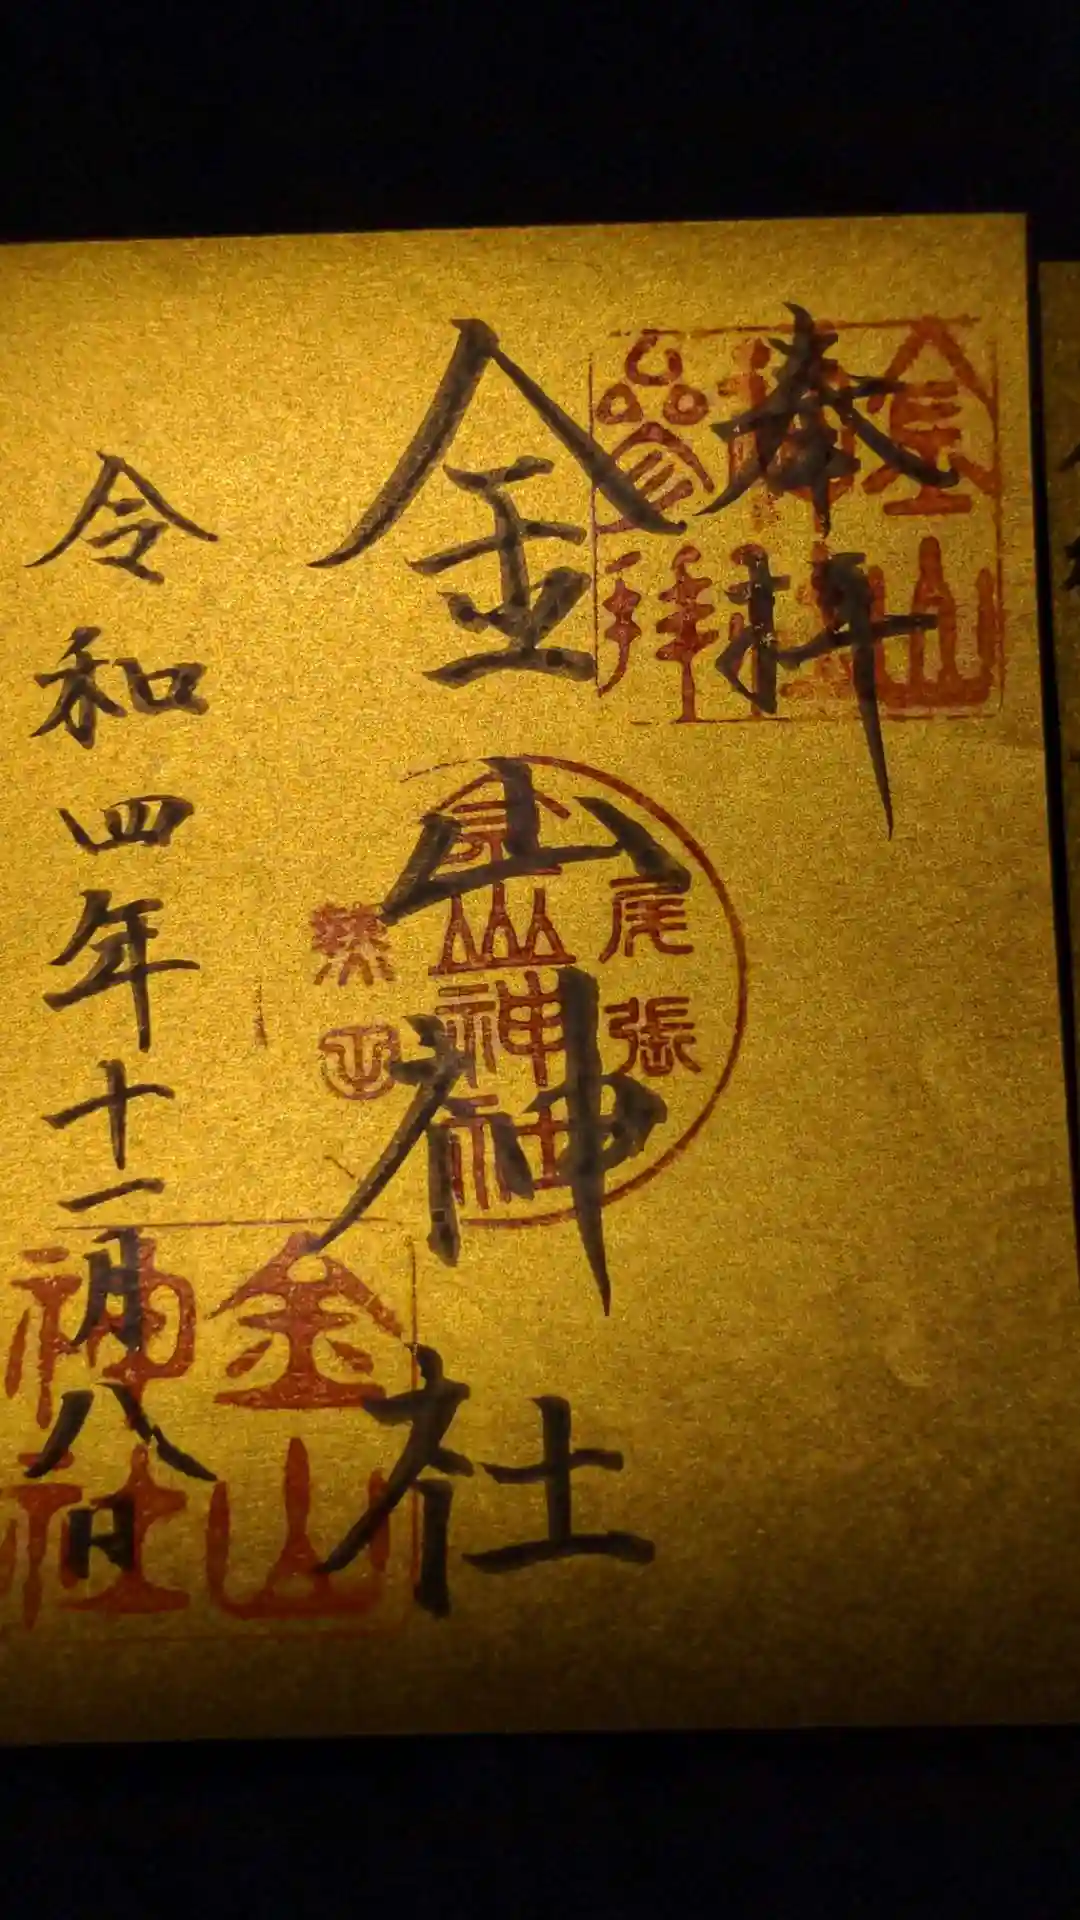 奉拝
金山神社
令和四年十一月八日
金山
神社
参拝
尾張
金山神社
熱田
金山
神社